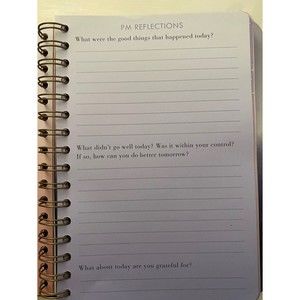 PM REFLECTIONS
What were the good things that happened today?
What didn't go well today? Was it within your control?
If so, how can you do better tomorrow?
What about today are you grateful for?